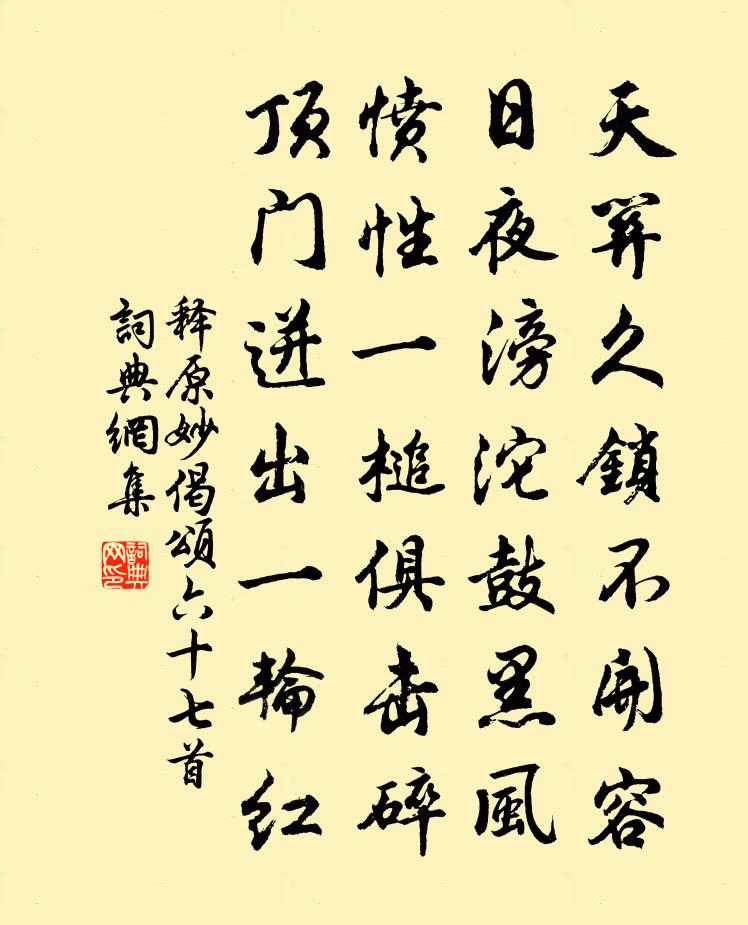 天羿久鎖不開容
日夜滂沱鼓黑風
憤性一槌俱击碎
顶门迸出一輪红
释原妙偈頌六十七首
詞典網集
詞典网印